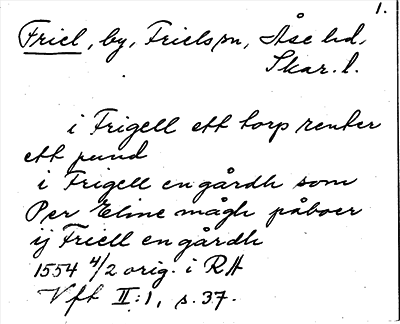 1.
Friel, by, Friels sn, Åse hd,
Skar. l.
i Frigell ett torp renter
ett pund
i Frigell en gårdh som
Per Eline mågh påboer
ij Friell en gårdh
1554 4/2 orig. i RA
Vft II:1, s. 37.